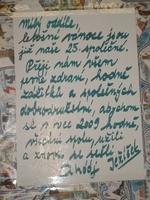 Milý oddíle,
letošní vánoce jsou
již naše 25. společné.
Přeji nám všem
jenom zdraví, hodně
zážitků a společných
dobrodružství, abychom
se i v roce 2009 hodně
spolu užili
a znovu se sešli
Ahoj Ježíšek